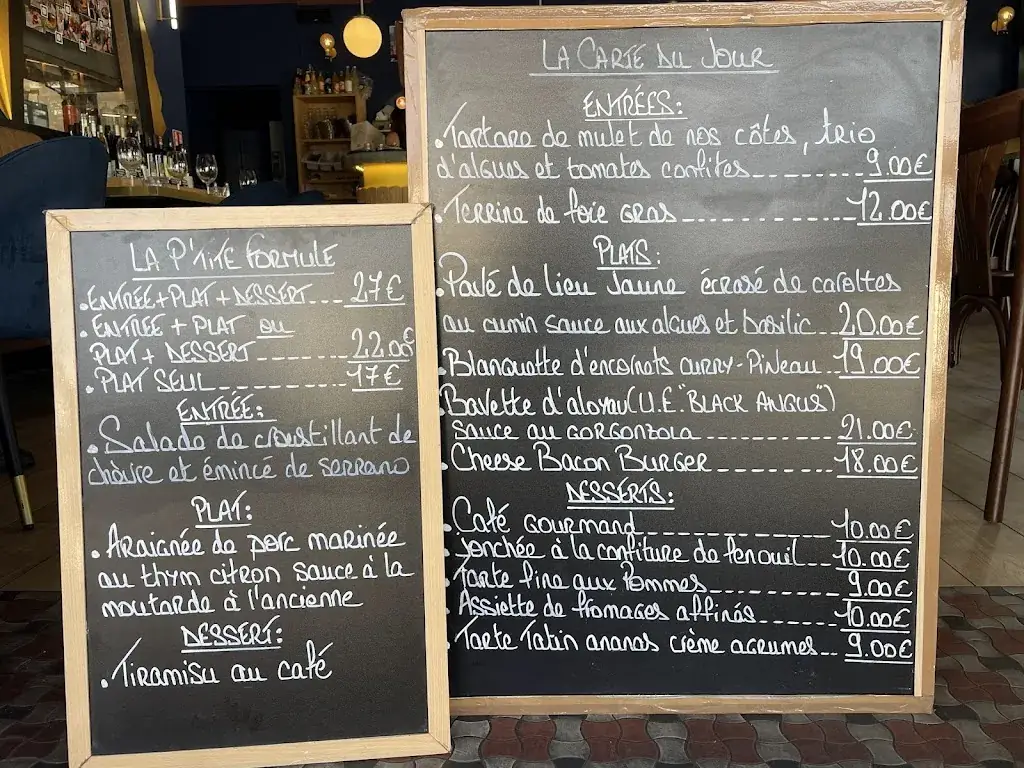 LA P'TITE FORMULE
.ENTRÉE+PLAT+DESSERT... 27€
.ENTRÉE + PLAT ou
PLAT + DESSERT------- 22.00€
.PLAT SEUL---------- 17€
ENTRÉE:
.Salade de croustillant de
chèvre et émincé de serrano
PLAT:
.Araignée de porc marinée
au thym citron sauce à la
moutarde à l'ancienne
DESSERT:
.Tiramisu au café
LA CARTE DU JOUR
ENTRÉES:
.Tartare de mulet de nos côtes, trio
d'algues et tomates confites------- 9.00€
.Terrine de foie gras------------- 12.00€
PLATS:
.Pavé de Lieu Jaune écrasé de carottes
au cumin sauce aux algues et basilic.. 20.00€
.Blanquette d'encornets curry-Pineau.. 19.00€
.Bavette d'aloyau (U.E."BLACK ANGUS")
sauce au gorgonzola--------- 21.00€
.Cheese Bacon Burger-------- 18.00€
DESSERTS:
.Café gourmand------------- 10.00€
.Jonchée à la confiture de fenouil.. 10.00€
.Tarte fine aux Pommes-------- 9.00€
.Assiette de fromages affinés------ 10.00€
.Tarte Tatin ananas crème agrumes.. 9.00€